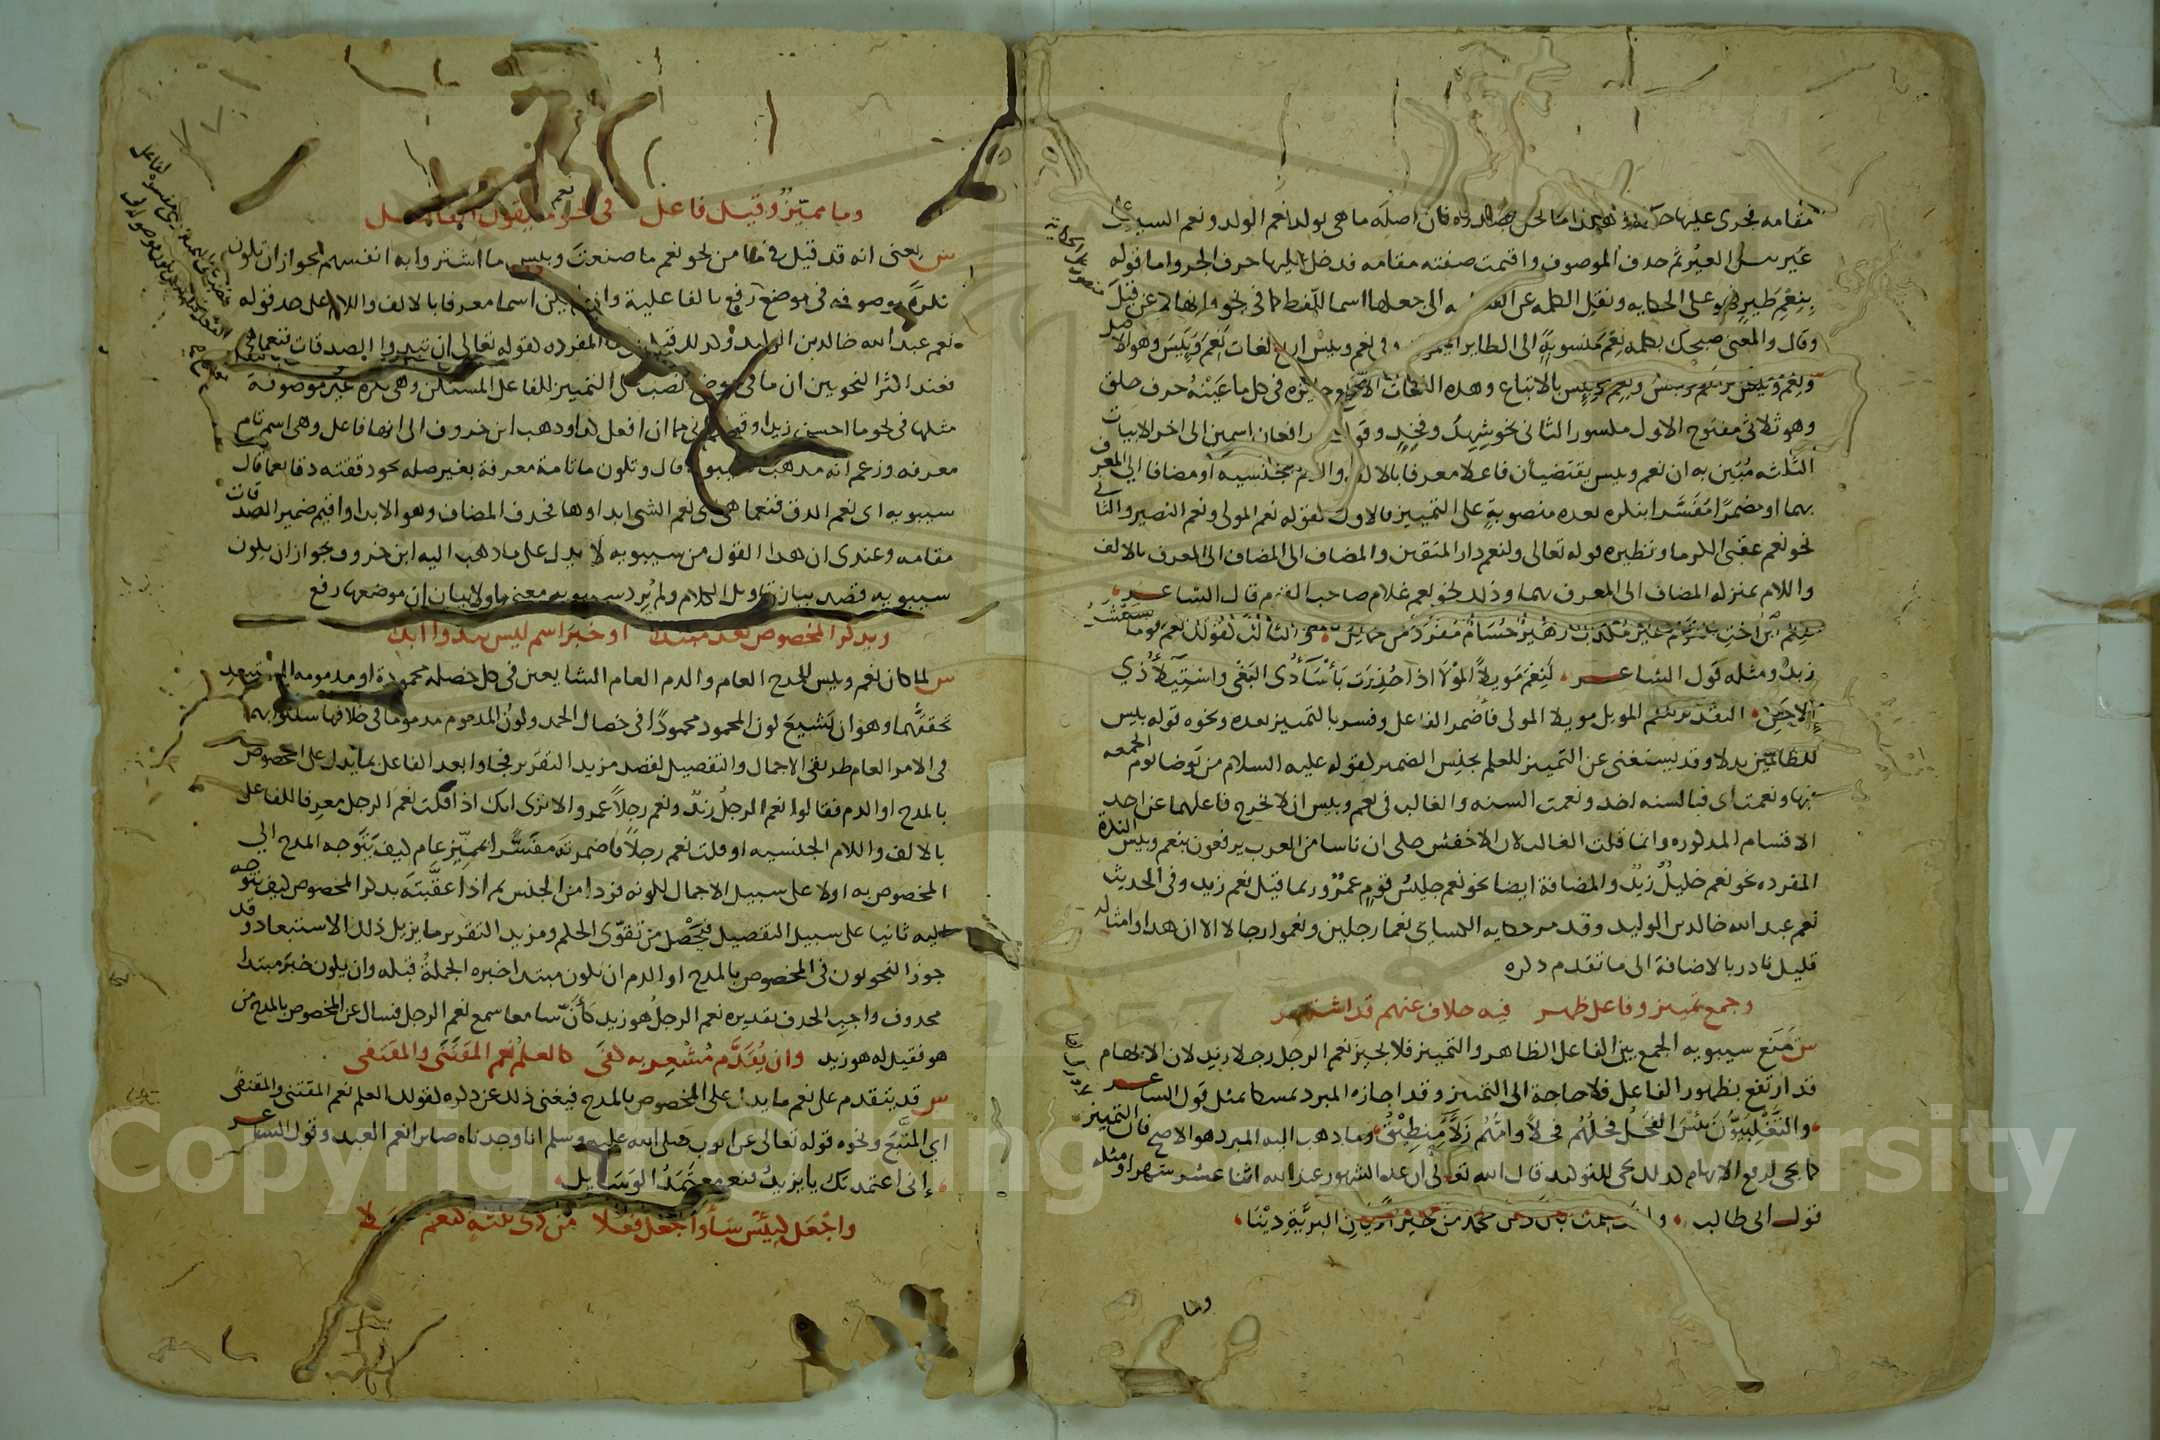 مقامه فجرى عليها حكمه فهكذا ما نحن بصدده فان اصله ما هى بولد نعم الولد ونعم السير
عير بئس العير ثم حذف الموصوف واقيمت صفته مقامه فدخل عليها حرف الجر واما قوله
بنعم طير فهو على الحكايه ونقل الكلمه عن الفعليه الى جعلها اسما للفظ كما فى نحو وانهاكم عن قيل
وقال والمعنى صبحك بكلمه نعم منسوبة الى الطاير الميمون وفى نعم وبئس اربع لغات نعم وبئس وهو الاصل
ونعم وبئس ونعم وبئس ونعم وبئس بالاتباع وهذه اللغات الاربع جايزه فى كل ما عينه حرف حلق
وهو ثلاثى مفتوح الاول مكسور الثانى نحو شهد وفخذ وقوله رافعان اسمين الى اخر الابيات
الثلثه مبين به ان نعم وبئس يقتضيان فاعلا معرفا بالالف واللام الجنسيه او مضافا الى المعرف
بهما او مضمرا مفسرا بنكره بعده منصوبة على التمييز فالاول كقوله نعم المولى ونعم النصير والثانى
نحو نعم عقبى الكرما ونظيره قوله تعالى ولنعم دار المتقين والمضاف الى المضاف الى المعرف بالالف
واللام بمنزله المضاف الى المعرف بهما وذلك نحو نعم غلام صاحب القوم قال الشاعر
فنعم ابن اخت القوم غير مكذب زهير حسام مفرد من حمايل والثالث كقولك نعم قوما معشره
زيد ومثله قول الشاعر لنعم مويلا المولا اذا حذرت بأسآء ذى البغى واستيلآء ذي
الاحن التقدير لنعم المويل مويلا المولى فأضمر الفاعل وفسر بالتمييز بعده ونحوه قوله بئس
للظالمين بدلا وقد يستغنى عن التمييز للعلم بجنس الضمير كقوله عليه السلام من توضا يوم الجمعه
فبها ونعمت اى فبالسنه اخذ ونعمت السنه والغالب فى نعم وبئس ان لا تخرج فاعلهما عن احد
الاقسام المذكوره وانما قلت الغالب لان الاخفش حكى ان ناسا من العرب يرفعون بنعم وبئس النكرة
المفرده نحو نعم خليل زيد والمضافة ايضا نحو نعم جليس قوم عمرو وربما قيل نعم زيد وفى الحديث
نعم عبد الله خالد بن الوليد وقد مر حكايه الكساى نعما رجلين ونعموا رجالا الا ان هذا وامثاله
قليل نادر بالاضافة الى ما تقدم ذكره
وجمع تمييز وفاعل ظهر فيه خلاف عنهم قد اشتهر
ش منع سيبويه الجمع بين الفاعل الظاهر والتمييز فلا يجيز نعم الرجل رجلا زيد لان الابهام
قد ارتفع بظهور الفاعل فلا حاجة الى التمييز وقد اجازه المبرد تمسكا بمثل قول الشاعر
والتغلبيون بئس الفحل فحلهم فحلا وامهم زلآء منطيق وما ذهب اليه المبرد هو الاصح فان التمييز
كما يجى لرفع الابهام كذلك يجى للتوكيد قال الله تعالى ان عده الشهور عند الله اثنا عشر شهرا ومثله
قول ابى طالب ولقد علمت بان دين محمد من خير اديان البرية دينا
وما
وما مميز وقيل فاعل فى نحو نعم ما يقول الفاضل
ش يعنى انه قد قيل فى ما من نحو نعم ما صنعت وبئس ما اشتروا به انفسهم بجواز ان تكون
نكرة موصوفه فى موضع رفع بالفاعلية وان لم تكن اسما معرفا بالالف واللام على حد قوله
نعم عبد الله خالد بن الوليد وكذلك قيل فى ما المفرده كقوله تعالى ان تبدوا الصدقات فنعما هى
فعند اكثر النحويين ان ما فى موضع نصب على التمييز للفاعل المستكن وهى نكره غير موصوفة
مثلها فى نحو ما احسن زيدا وقولهم انى مما ان افعل كذا وذهب ابن خروف الى انها فاعل وهى اسم تام
معرفه وزعم انه مذهب سيبويه قال وتكون ما تامة معرفة بغير صله نحو دققته دقا نعما قال
سيبويه اى نعم الدق فنعما هى اى نعم الشى ابداوها فحذف المضاف وهو الابدا واقيم ضمير الصدقات
مقامه وعندى ان هذا القول من سيبويه لا يدل على ما ذهب اليه ابن خروف بجواز ان يكون
سيبويه قصد بيان تاويل الكلام ولم يرد تفسير معنى ما ولا بيان ان موضعها رفع
ويذكر المخصوص بعد مبتدا او خبر اسم ليس يبدوا ابدا
ش لما كان نعم وبئس للمدح العام والذم العام الشايعين فى كل خصله محمودة او مذمومه المستبعد
تحققهما وهو ان تشيع لون المحمود محمودا فى خصال الحمد ولون المذموم مذموما فى خلافها سلكوا بهما
فى الامر العام طريقى الاجمال والتفصيل لقصد مزيد التقرير فجاوا بعد الفاعل بما يدل على المخصوص
بالمدح او الذم فقالوا نعم الرجل زيد ونعم رجلا عمرو الا ترى انك اذا قلت نعم الرجل معرفا للفاعل
بالالف واللام الجنسيه او قلت نعم رجلا فاضمرته مفسرا بمميز عام كيف يتوجه المدح الى
المخصوص به اولا على سبيل الاجمال لكونه فردا من الجنس ثم اذا عقبته بذكر المخصوص كيف يتوجه
اليه ثانيا على سبيل التفصيل فيحصل من تقوى الحكم ومزيد التقرير ما يزيل ذلك الاستبعاد وقد
جوز النحويون فى المخصوص بالمدح او الذم ان يكون مبتدا خبره الجملة قبله وان يكون خبر مبتدا
محذوف واجب الحذف تقديره نعم الرجل هو زيد كأن سامعا سمع نعم الرجل فسال عن المخصوص بالمدح من
هو فقيل له هو زيد وان يقدم مشعر به كفى كالعلم نعم المقتنى والمقتفى
ش قد يتقدم على نعم ما يدل على المخصوص بالمدح فيغنى ذلك عن ذكره كقولك العلم نعم المقتنى والمقتفى
اي المتبع ونحوه قوله تعالى عن ايوب صلى الله عليه وسلم انا وجدناه صابرا نعم العبد وقول الشاعر
إنى اعتمدتك يا يزيد فنعم معتمد الوسايل
واجعل كبئس سآء واجعل فعلا من ذى ثلثه كنعم مسجلا